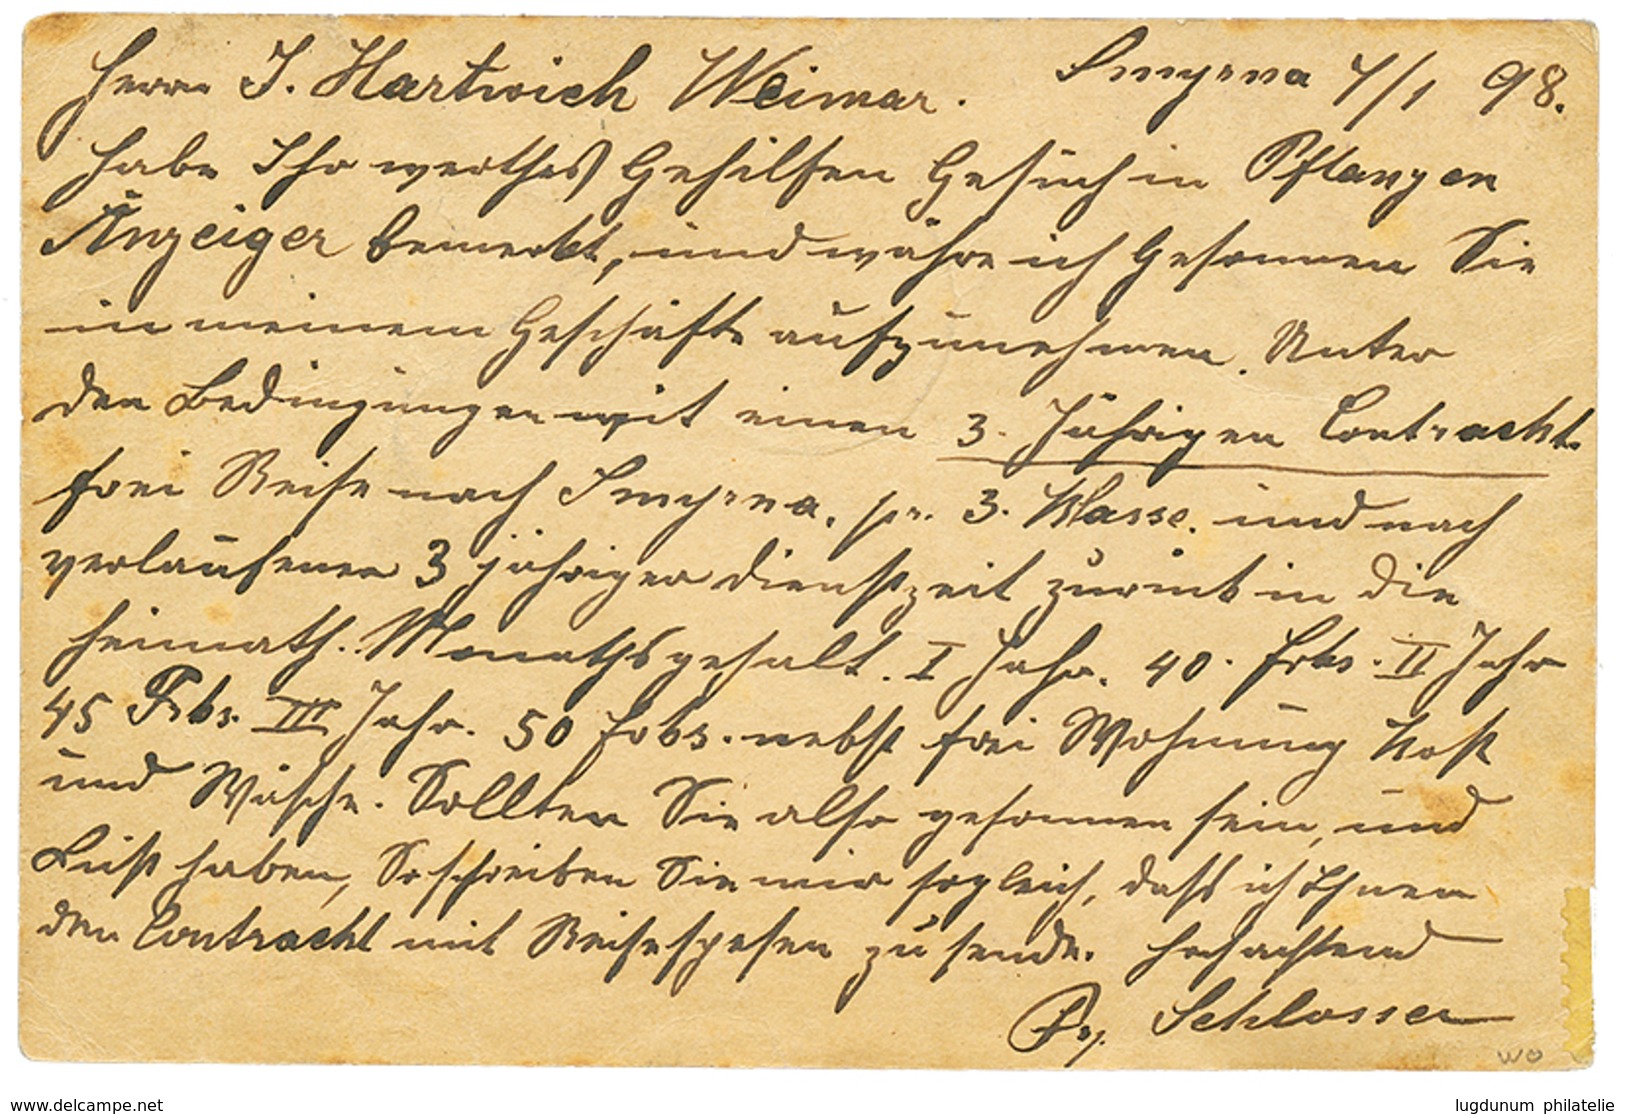 Herrn J. Hartwich Weimar. Smyrna 4/1 98.
habe Ihr werthes Gehilfen Gesuch in Pflanzen
Anzeiger bemerkt, und währe ich Gesonnen Sie
in meinem Geschäfte aufzunehmen. Unter
den Bedingungen mit einen 3. Jährigen Contrackt.
frei Reise nach Smyrna. pr. 3. Klasse. und nach
verlaufenen 3 jähriger dienstzeit zurück in die
heimath. Monathsgehalt. I Jahr. 40. frks. II Jahr
45 Frks. III Jahr. 50 frks. nebst frei Wohnung Kost
und Wäsche. Sollten Sie also gesonnen sein, und
Lust haben, So schreiben Sie mir sogleich, dass ich Ihnen
den Contrackt mit Reisespesen zu sende. hochachtend
Schlosser
wo
www.delcampe.net
lugdunum philatelie